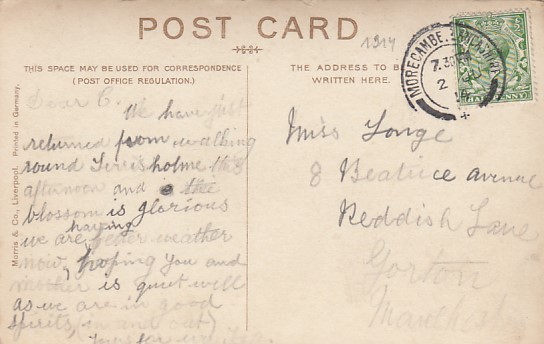 POST CARD
1914
THIS SPACE MAY BE USED FOR CORRESPONDENCE
(POST OFFICE REGULATION.)
THE ADDRESS TO BE
WRITTEN HERE.
Morris & Co., Liverpool. Printed in Germany.
Dear C.
We have just
returned from walking
round Torrisholme this
afternoon and the
blossom is glorious
we are having better weather
now, hoping you and
mother is quiet well
as we are in good
spirits, (in and out)
Miss Tonge
8 Beatrice Avenue
Reddish Lane
Gorton
Manchester
MORECAMBE.
7.30 PM
2
14